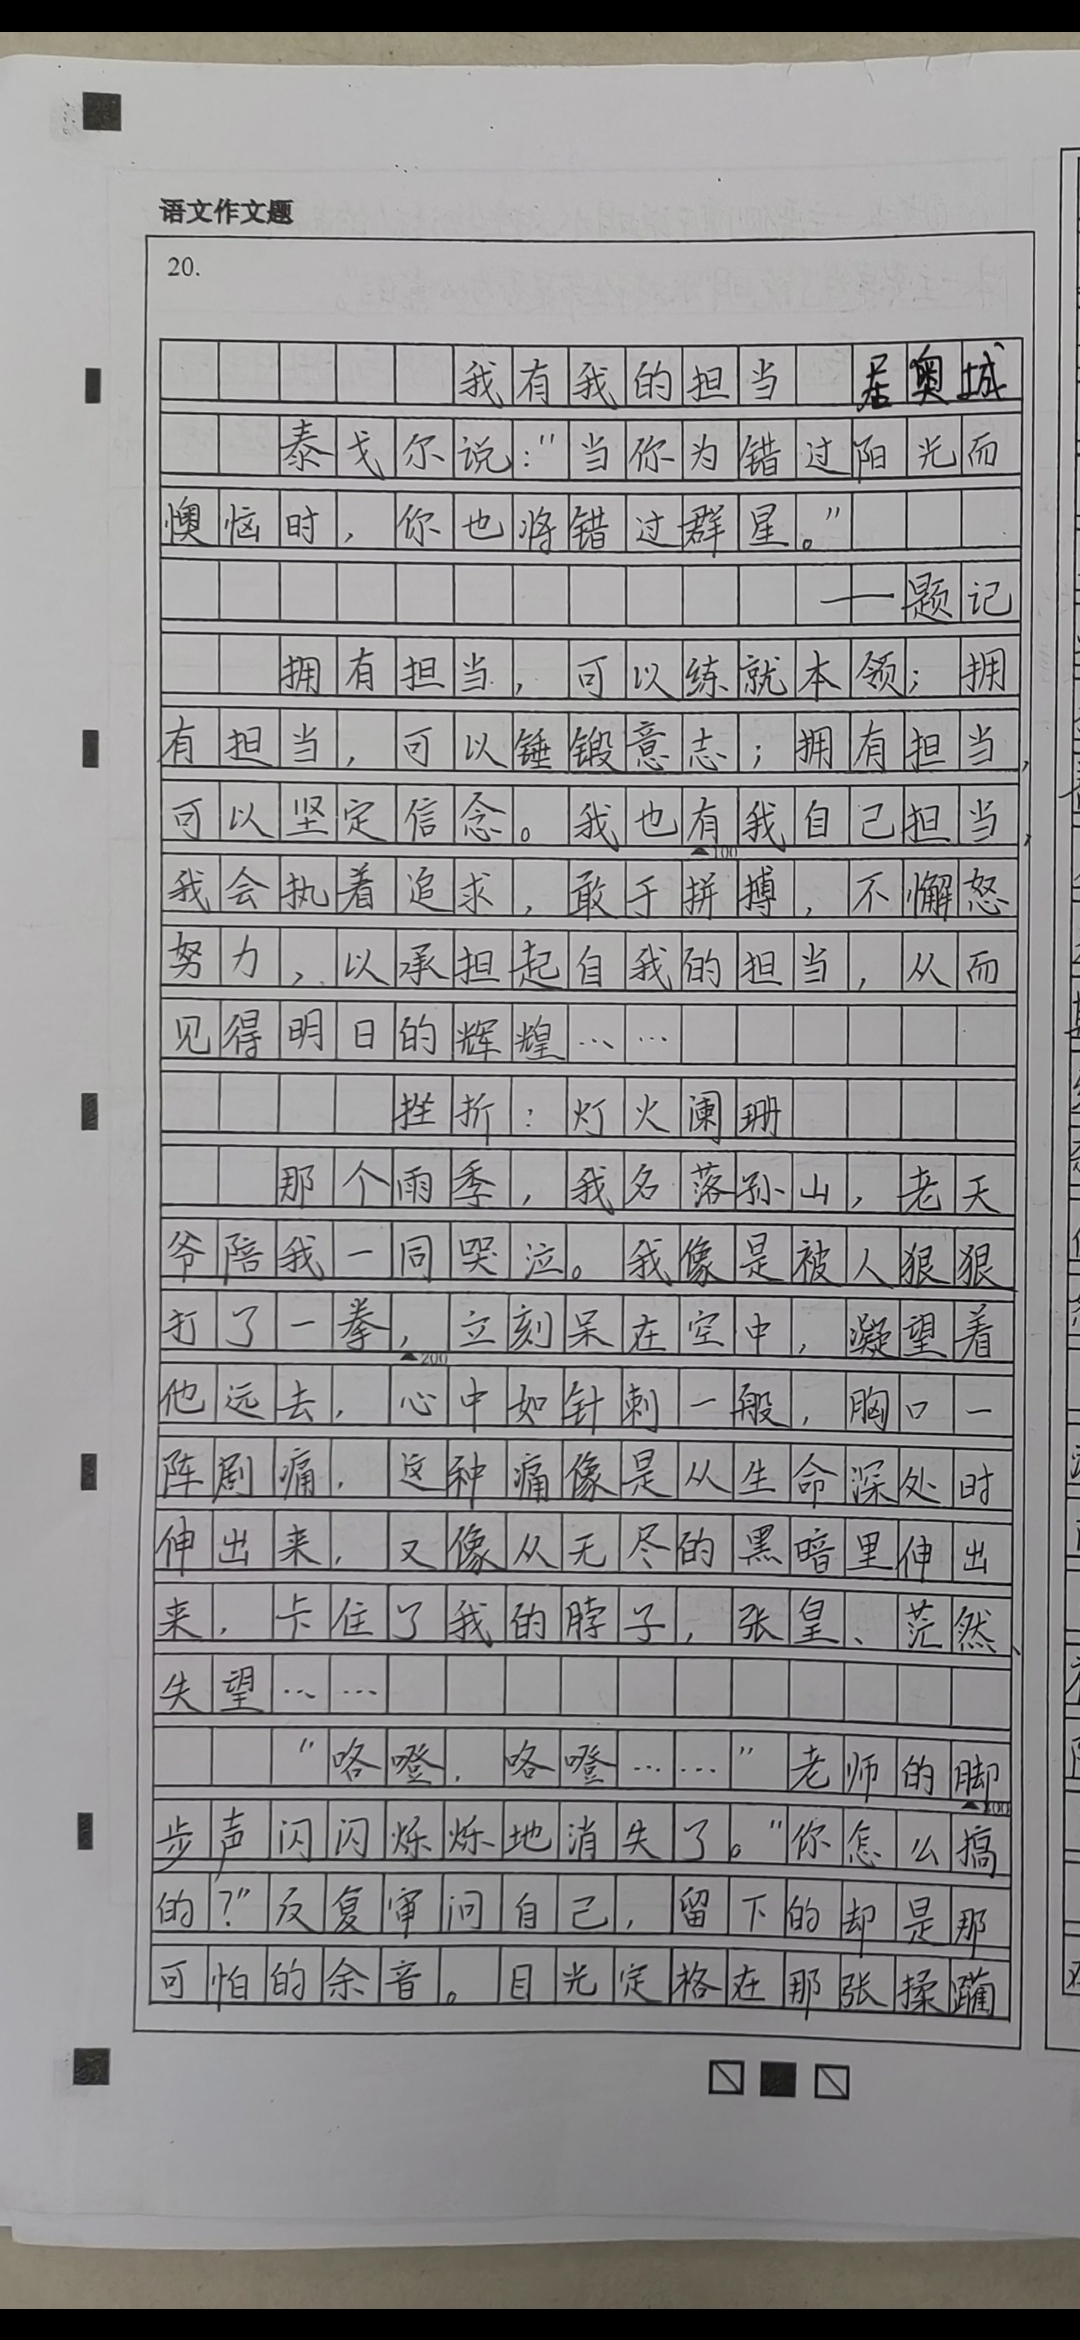 语文作文题
20.
我有我的担当 居奥城
泰戈尔说:"当你为错过阳光而
懊恼时,你也将错过群星。"
——题记
拥有担当,可以练就本领;拥
有担当,可以锤锻意志;拥有担当,
可以坚定信念。我也有我自己担当,
▲100
我会执着追求,敢于拼搏,不懈怒
努力,以承担起自我的担当,从而
见得明日的辉煌……
挫折:灯火阑珊
那个雨季,我名落孙山,老天
爷陪我一同哭泣。我像是被人狠狠
打了一拳,立刻呆在空中,凝望着
▲200
他远去,心中如针刺一般,胸口一
阵剧痛,这种痛像是从生命深处时
伸出来,又像从无尽的黑暗里伸出
来,卡住了我的脖子,张皇、茫然、
失望……
"咯噔,咯噔……"老师的脚
▲300
步声闪闪烁烁地消失了。"你怎么搞
的?"反复审问自己,留下的却是那
可怕的余音。目光定格在那张揉躏